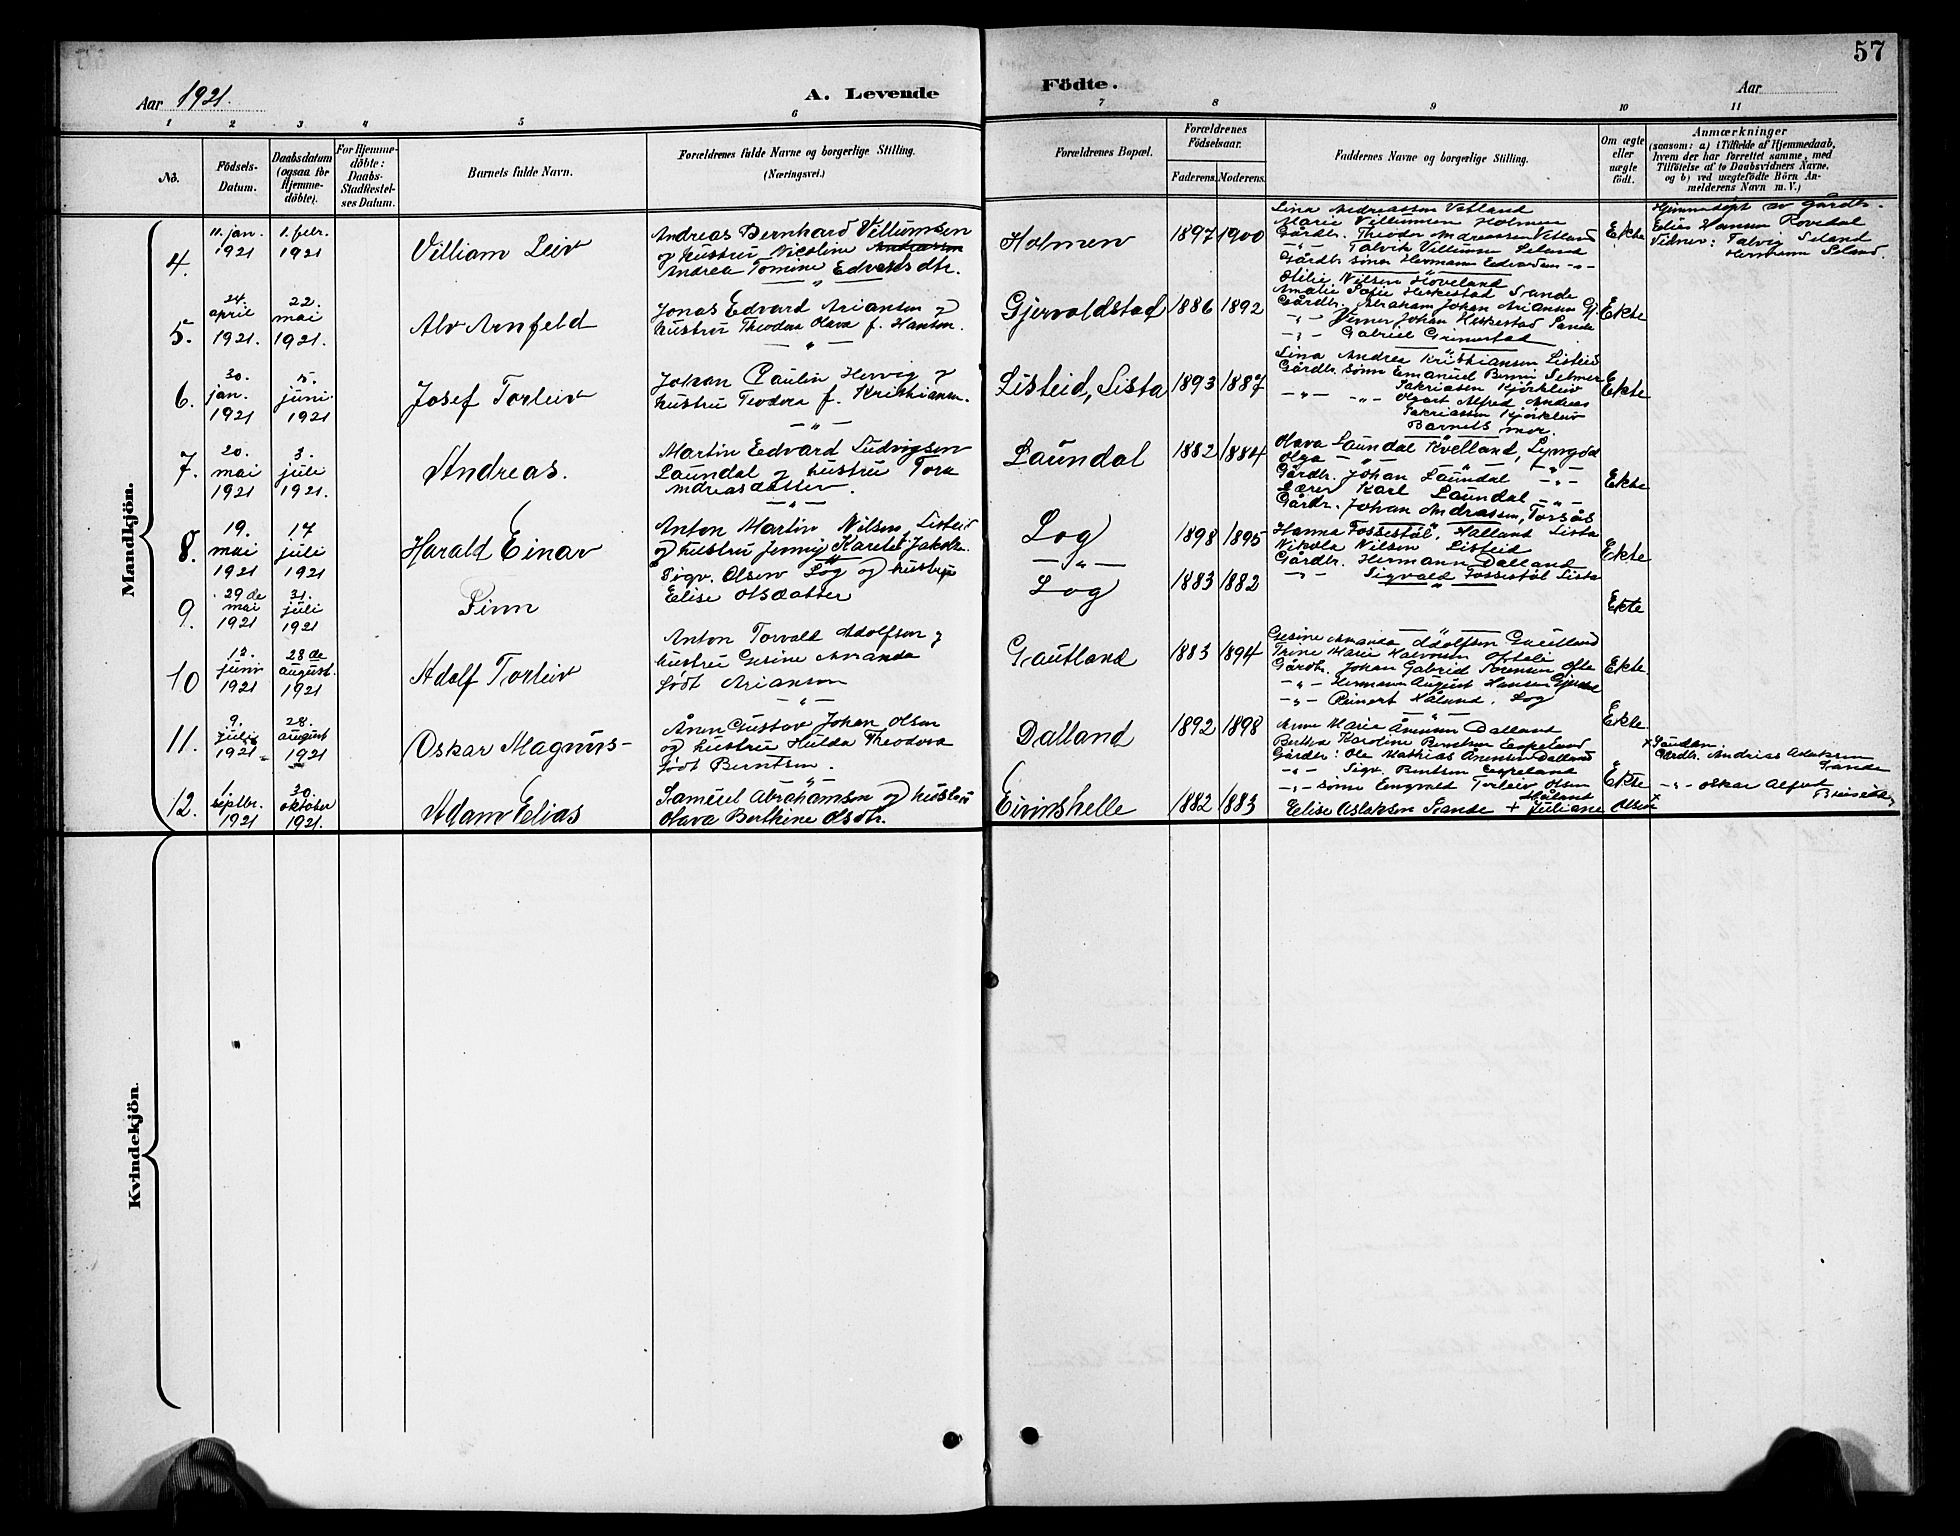 57
Aar 1921.
A. Levende
Födte.
Aar
1 2 3 4 5 6 7 8 9 10 11
No.
Födsels-
Datum.
Daabsdatum
(ogsaa for
Hjemme-
döbte).
For Hjemme-
döbte:
Daabs-
Stadfæstel-
ses Datum.
Barnets fulde Navn.
Forældrenes fulde Navne og borgerlige Stilling.
(Næringsvei.)
Forældrenes Bopæl.
Forældrenes
Födselsaar.
Faderens. Moderens.
Faddernes Navne og borgerlige Stilling.
Om ægte
eller
uægte
födt.
Anmærkninger
(saasom: a) i Tilfælde af Hjemmedaab,
hvem der har forrettet samme, med
Tilföielse af to Daabsvidners Navne,
og b) ved uægtefödte Börn An-
melderens Navn m. V.)
Mandkjön.
4.
11. jan.
1921
1. febr.
1921
Villiam Leiv
Andreas Bernhard Villumsen
og hustru Nicoline Andreassen
Andrea Tomine Edvardsdtr.
Holmen
1897 1900
Lina Andreassen Vatland
Marie Villumsen Holmen
Gårdbr. Theodor Andreassen Vatland
-"- Talvik Villumsen Seland
Gårdbr. sönn Hermann Edvardsen -"-
Ekte
Hjemmedöpt av gårdbr.
Elias Hansen Rovedal
Vidner: Talvig Seland
Hermann Seland.
5.
24.
april
1921.
22.
mai
1921.
Alv Arnfeld
Jonas Edvard Ariansen og
hustru Theodora Olava f. Hansen.
Gjervoldstad
1886 1892
Otilie Nilsen Hoveland
Amalie Sofie Heskestad Sande
Gårdbr. Abraham Johan Ariansen Gj.
-"- Verner Johan Heskestad Sande
-"- Gabriel Grimestad
Ekte
6.
30.
jan.
1921
5.
juni
1921
Josef Torleiv
Johan Paulin Hervig og
hustru Teodora f. Kristiansen.
Listeid, Lista
1893 1887
Lina Andrea Kristiansen Listeid
Gårdbr. sönn Emanuel Berni Selmer
Sakriasen Kjörkleiv
-"- -"- Olgart Alfred Andreas
Sakriassen Kjörkleiv
Barnets mor.
Ekte
7.
20.
mai
1921
3.
juli
1921.
Andreas.
Martin Edvard Ludvigsen
Laundal og hustru Tora
Andreasdatter.
Laundal
1882 1884
Olava Laundal Kvelland, Lyngdal
Olga -"- -"-
Gårdbr. Johan Laundal -"-
Lærer Karl Laundal -"-
Gårdbr. Johan Andrassen, Torsås
Ekte
8.
19.
mai
1921
17
juli
1921
Harald Einar
Anton Martin Nilsen, Listeid
og hustru Jenny Karelie Jakobs.
Log
-"-
1898 1895
Hanna Fossestöl, Halland Lista
Nikola Nilsen Listeid
Gårdbr. Hermann Dalland
-"- Sigvald Fossestöl Lista
Ekte
9.
29 de
mai
1921
31.
juli
1921
Finn
Sigv. Olsen Log og hustru
Elise Olsdatter
Log
1883 1882
Ekte
10
12.
juni
1921
28 de
august.
1921
Adolf Torleiv
Anton Torvald Adolfsen og
hustru Gesine Amanda
födt Arianson
Gautland
1883 1894
Gesine Amanda Adolfsen Gautland
Trine Marie Halvorsen Ofteli
Gårdbr. Johan Gabriel Sörensen Ofte
-"- Hermann August Hansen
-"- Reinert Håland, Log
Ekte
11.
9.
juli
1921
28.
august
1921
Oskar Magnus-
Ånen Gustav Johan Olson
og hustru Hulda Theodora
födt Berntsen.
Dalland
1892 1898
Anne Marie Ånensen Dalland
Berthea Karoline Berntsen Espeland
Gårdbr: Ole Mathias Ånensen Dalland
-"- Sigv. Berntsen Espeland
-"- sönn Engvald Torleiv Olsen
Håland
Ekte
12.
1.
septbr.
1921
30.
oktober
1921.
Adam Elias
Samuel Abrahamsen og hustru
Olava Berthine Olsdtr.
Eivinshelle
1882 1883
Elise Aslaksen Sande + Juliane Olsen
Ekte
Gårdbr. Andrias Aslaksen
Sande
-"- Oskar Alfred
Kvindekjön.